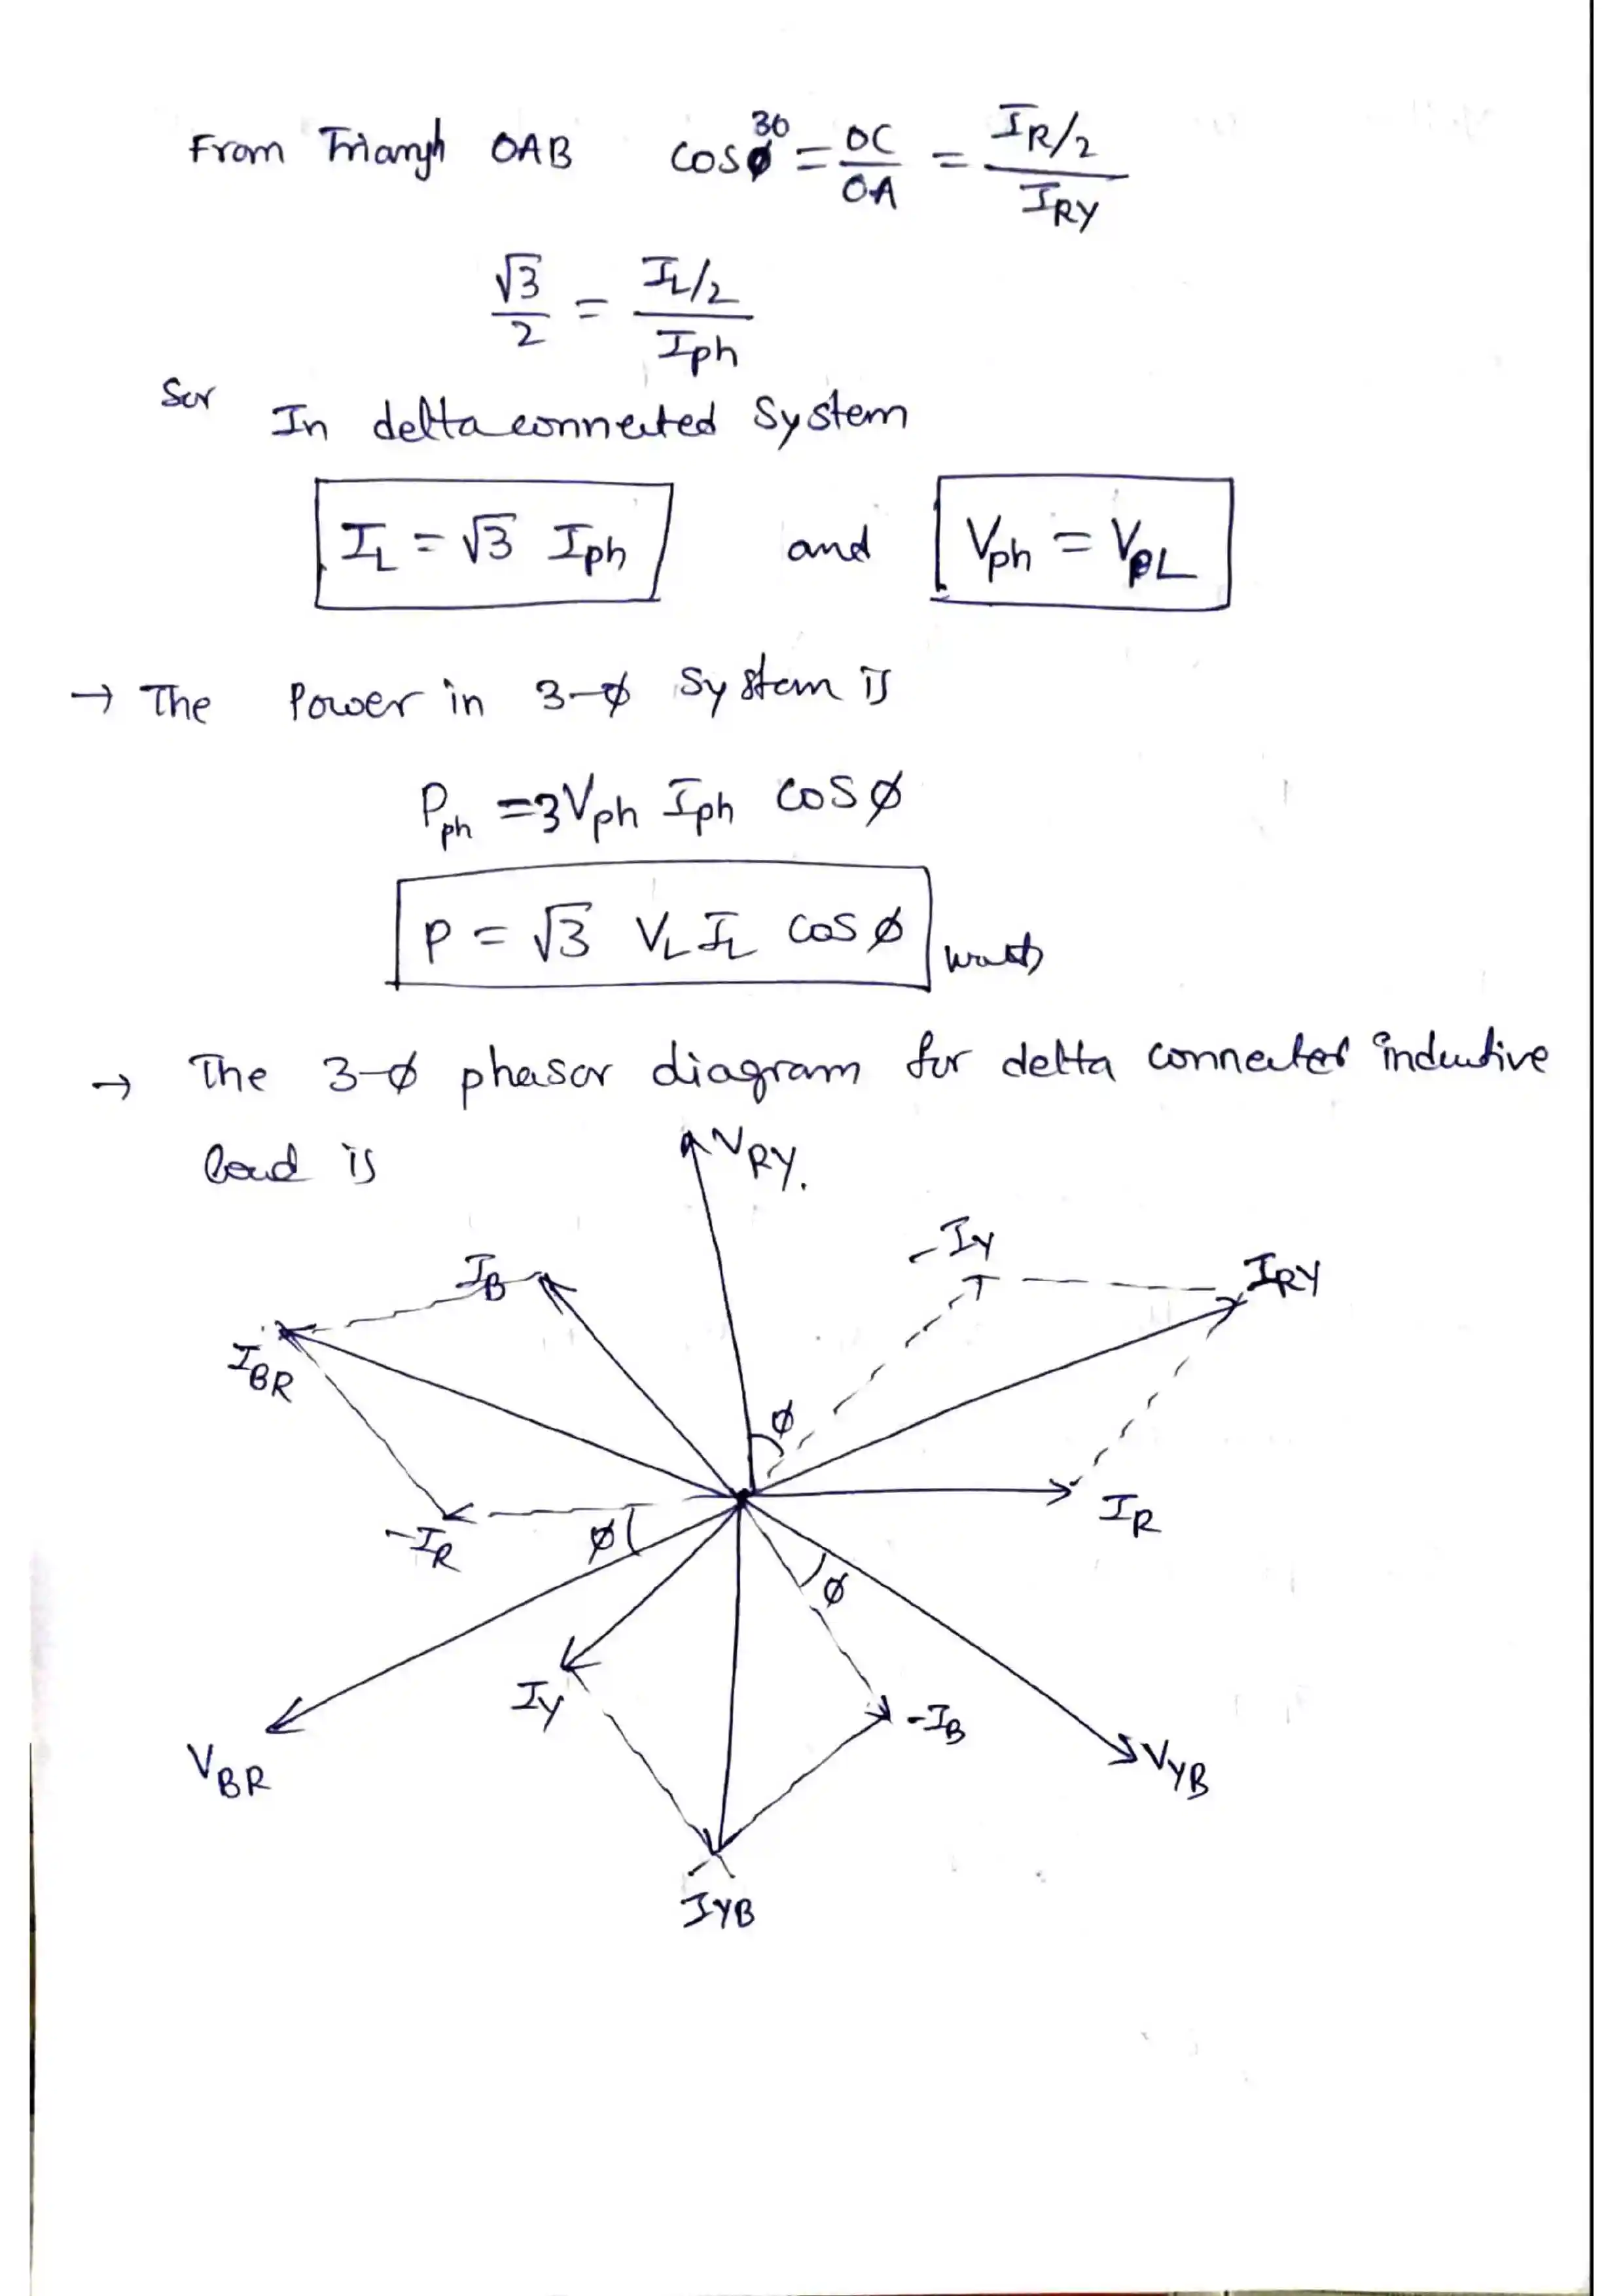 From Triangle OAB cos30 = OC/OA = IR/2 / IRY
√3/2 = IL/2 / Iph
In delta connected System
IL = √3 Iph and Vph = VL
→ The Power in 3-ϕ System is
Pph = 3Vph Iph cosϕ
P = √3 VL IL cosϕ watts
→ The 3-ϕ phasor diagram for delta connected inductive
load is
VRY.
-IY
IB
IRY
IBR
ϕ
IR
-IR
ϕ
ϕ
IY
-IB
VBR
VYB
IYB